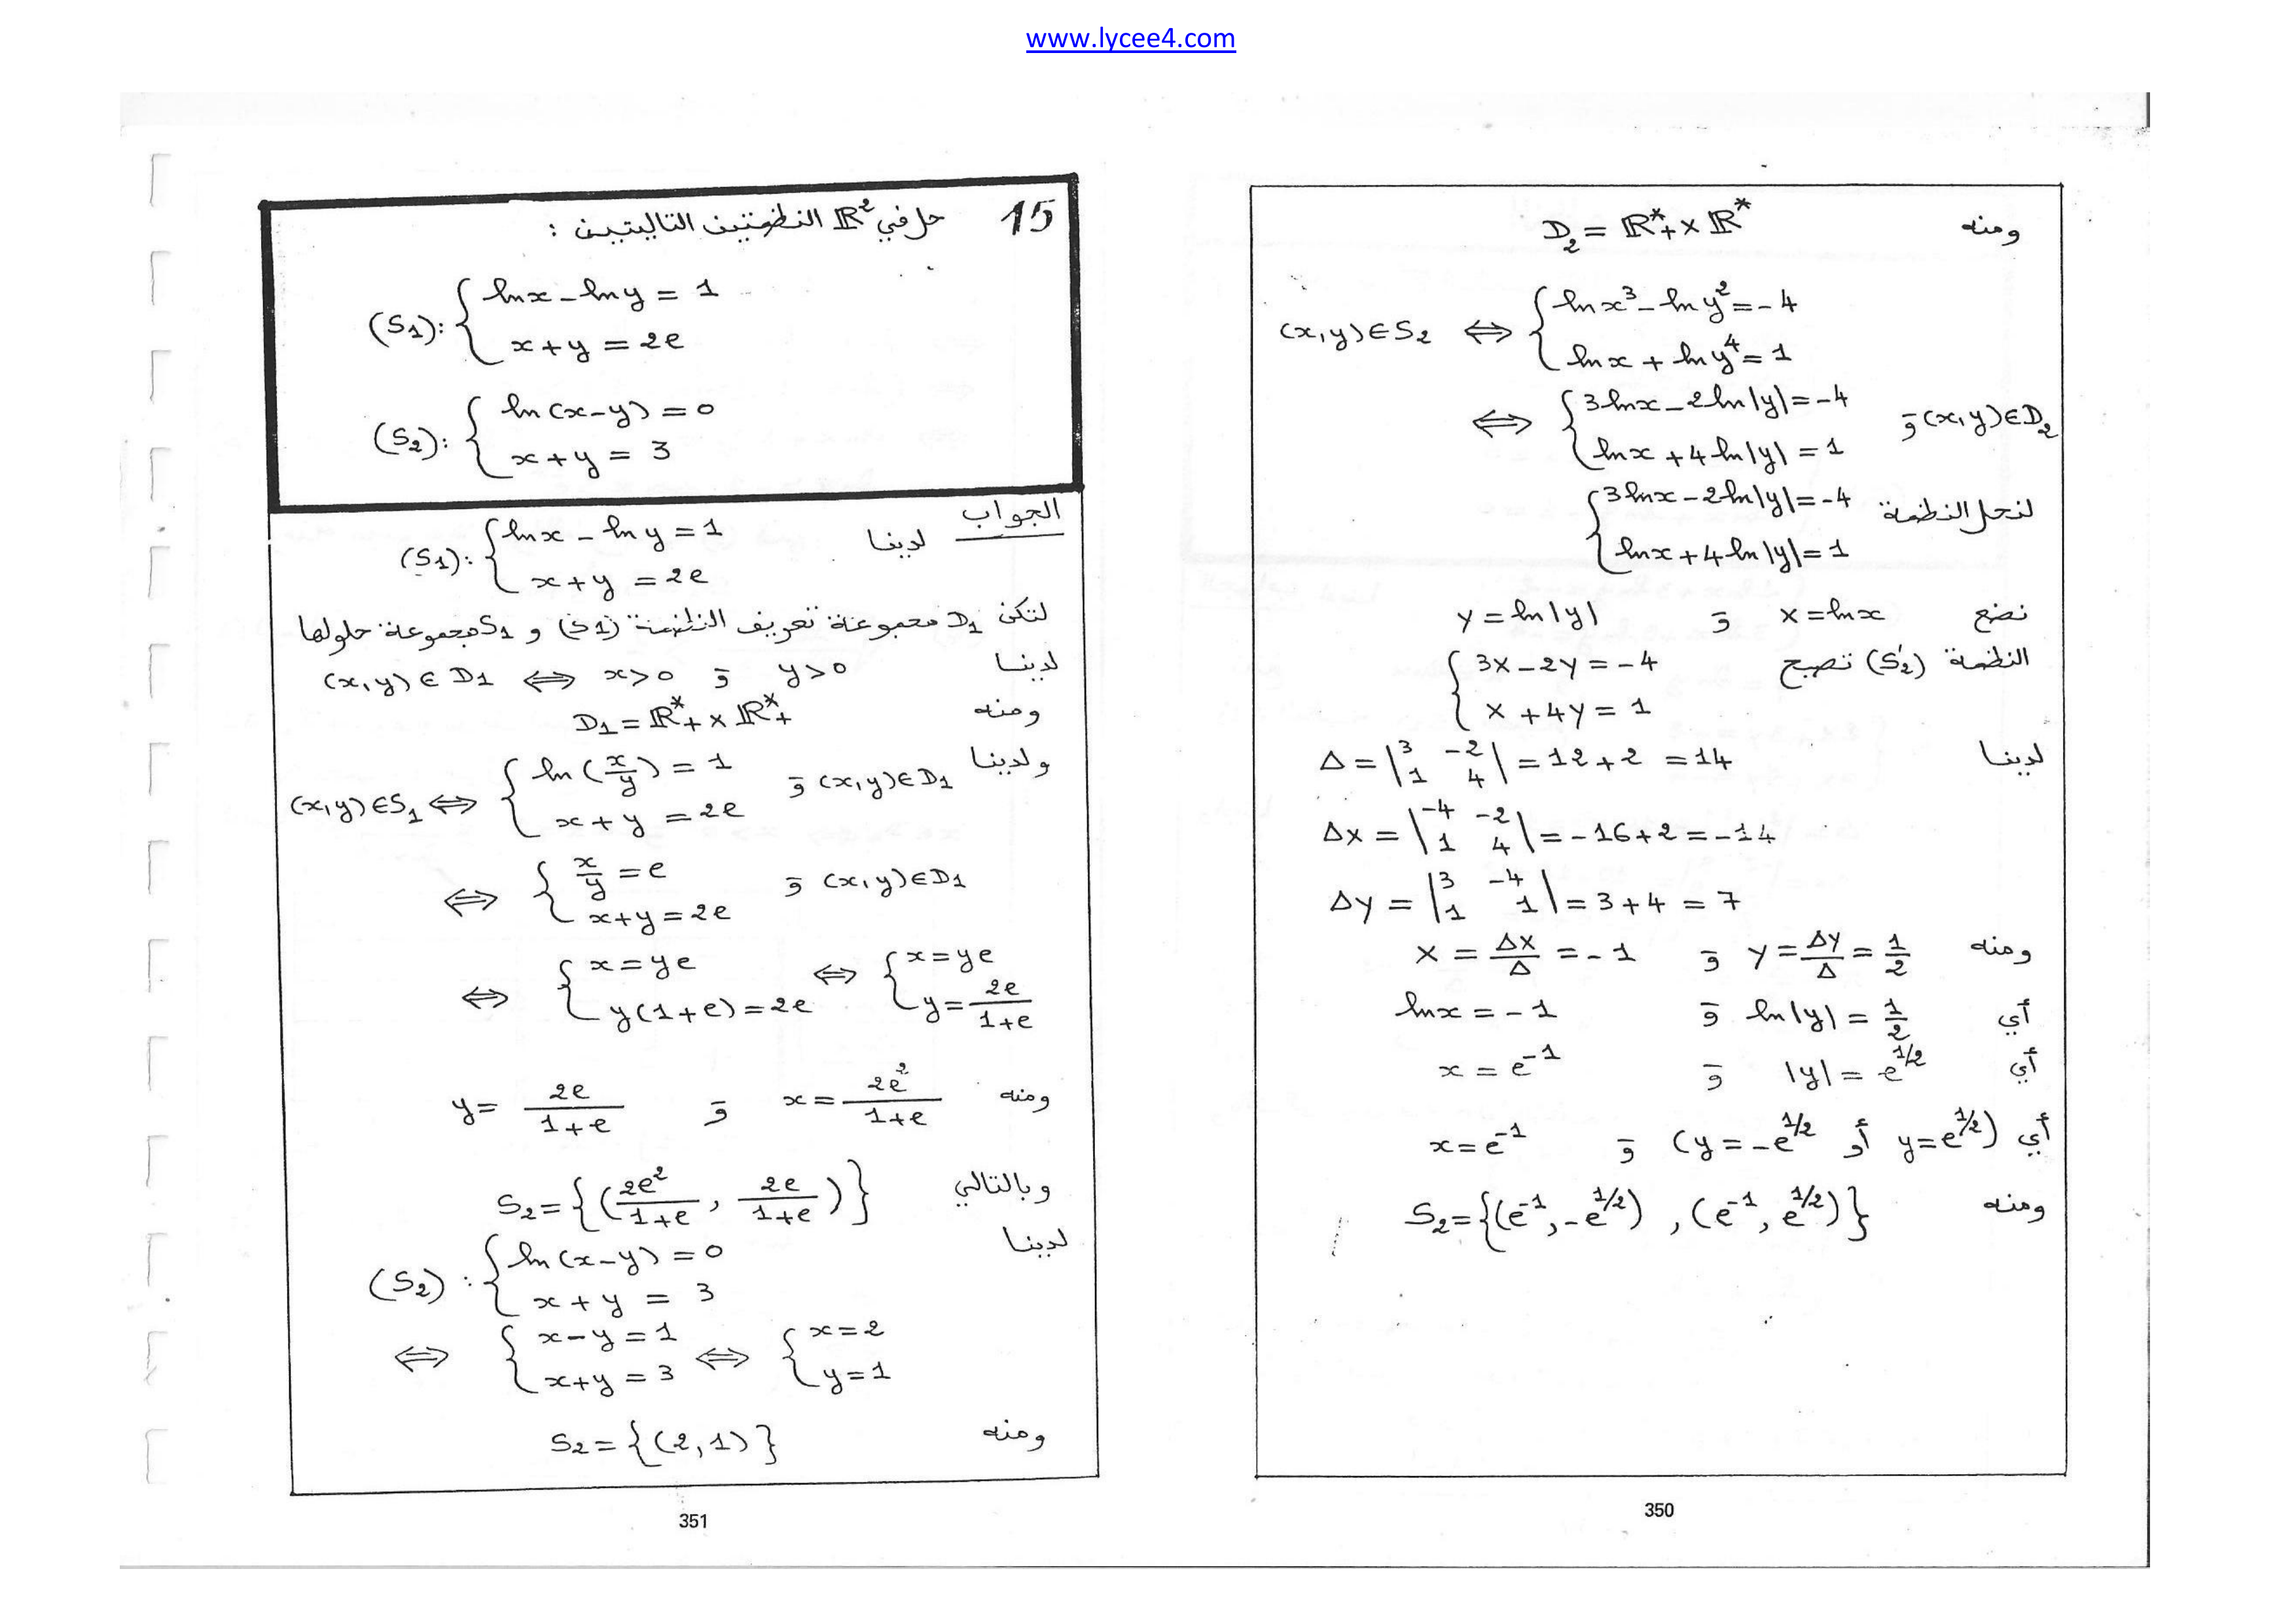 www.lycee4.com
ومنه D₂ = ℝ*₊ × ℝ*
(x,y)∈S₂ ⟺ { lnx³ - lny² = -4
lnx + lny⁴ = 1
⟺ { 3lnx - 2ln|y| = -4 و (x,y)∈D₂
lnx + 4ln|y| = 1
لنحل النظمة { 3lnx - 2ln|y| = -4
lnx + 4ln|y| = 1
نضع X = lnx و Y = ln|y|
النظمة (S'₂) تصبح { 3X - 2Y = -4
X + 4Y = 1
لدينا Δ = |3 -2; 1 4| = 12 + 2 = 14
ΔX = |-4 -2; 1 4| = -16 + 2 = -14
ΔY = |3 -4; 1 1| = 3 + 4 = 7
ومنه X = ΔX/Δ = -1 و Y = ΔY/Δ = 1/2
أي lnx = -1 و ln|y| = 1/2
أي x = e⁻¹ و |y| = e^{1/2}
أي x = e⁻¹ و (y = -e^{1/2} أو y = e^{1/2})
ومنه S₂ = {(e⁻¹, -e^{1/2}) , (e⁻¹, e^{1/2})}
350
15 حل في ℝ² النظمتين التاليتين :
(S₁): { lnx - lny = 1
x + y = 2e
(S₂): { ln(x-y) = 0
x + y = 3
الجواب
لدينا (S₁): { lnx - lny = 1
x + y = 2e
لتكن D₁ مجموعة تعريف النظمة (S₁) و S₁ مجموعة حلولها
لدينا (x,y) ∈ D₁ ⟺ x > 0 و y > 0
ومنه D₁ = ℝ*₊ × ℝ*₊
ولدينا (x,y)∈S₁ ⟺ { ln(x/y) = 1 و (x,y)∈D₁
x + y = 2e
⟺ { x/y = e و (x,y)∈D₁
x+y = 2e
⟺ { x = ye ⟺ { x = ye
y(1+e) = 2e y = 2e/(1+e)
ومنه x = 2e²/(1+e) و y = 2e/(1+e)
وبالتالي S₂ = {(2e²/(1+e) , 2e/(1+e))}
لدينا (S₂): { ln(x-y) = 0
x + y = 3
⟺ { x - y = 1 ⟺ { x = 2
x+y = 3 y = 1
ومنه S₂ = {(2,1)}
351